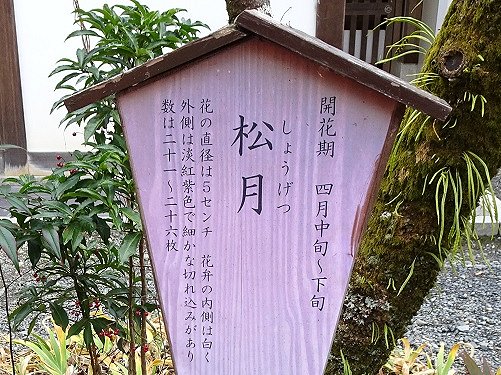 開花期　四月中旬～下旬
しょうげつ
松月
花の直径は5センチ　花弁の内側は白く
外側は淡紅紫色で細かな切れ込みがあり
数は二十一～二十六枚